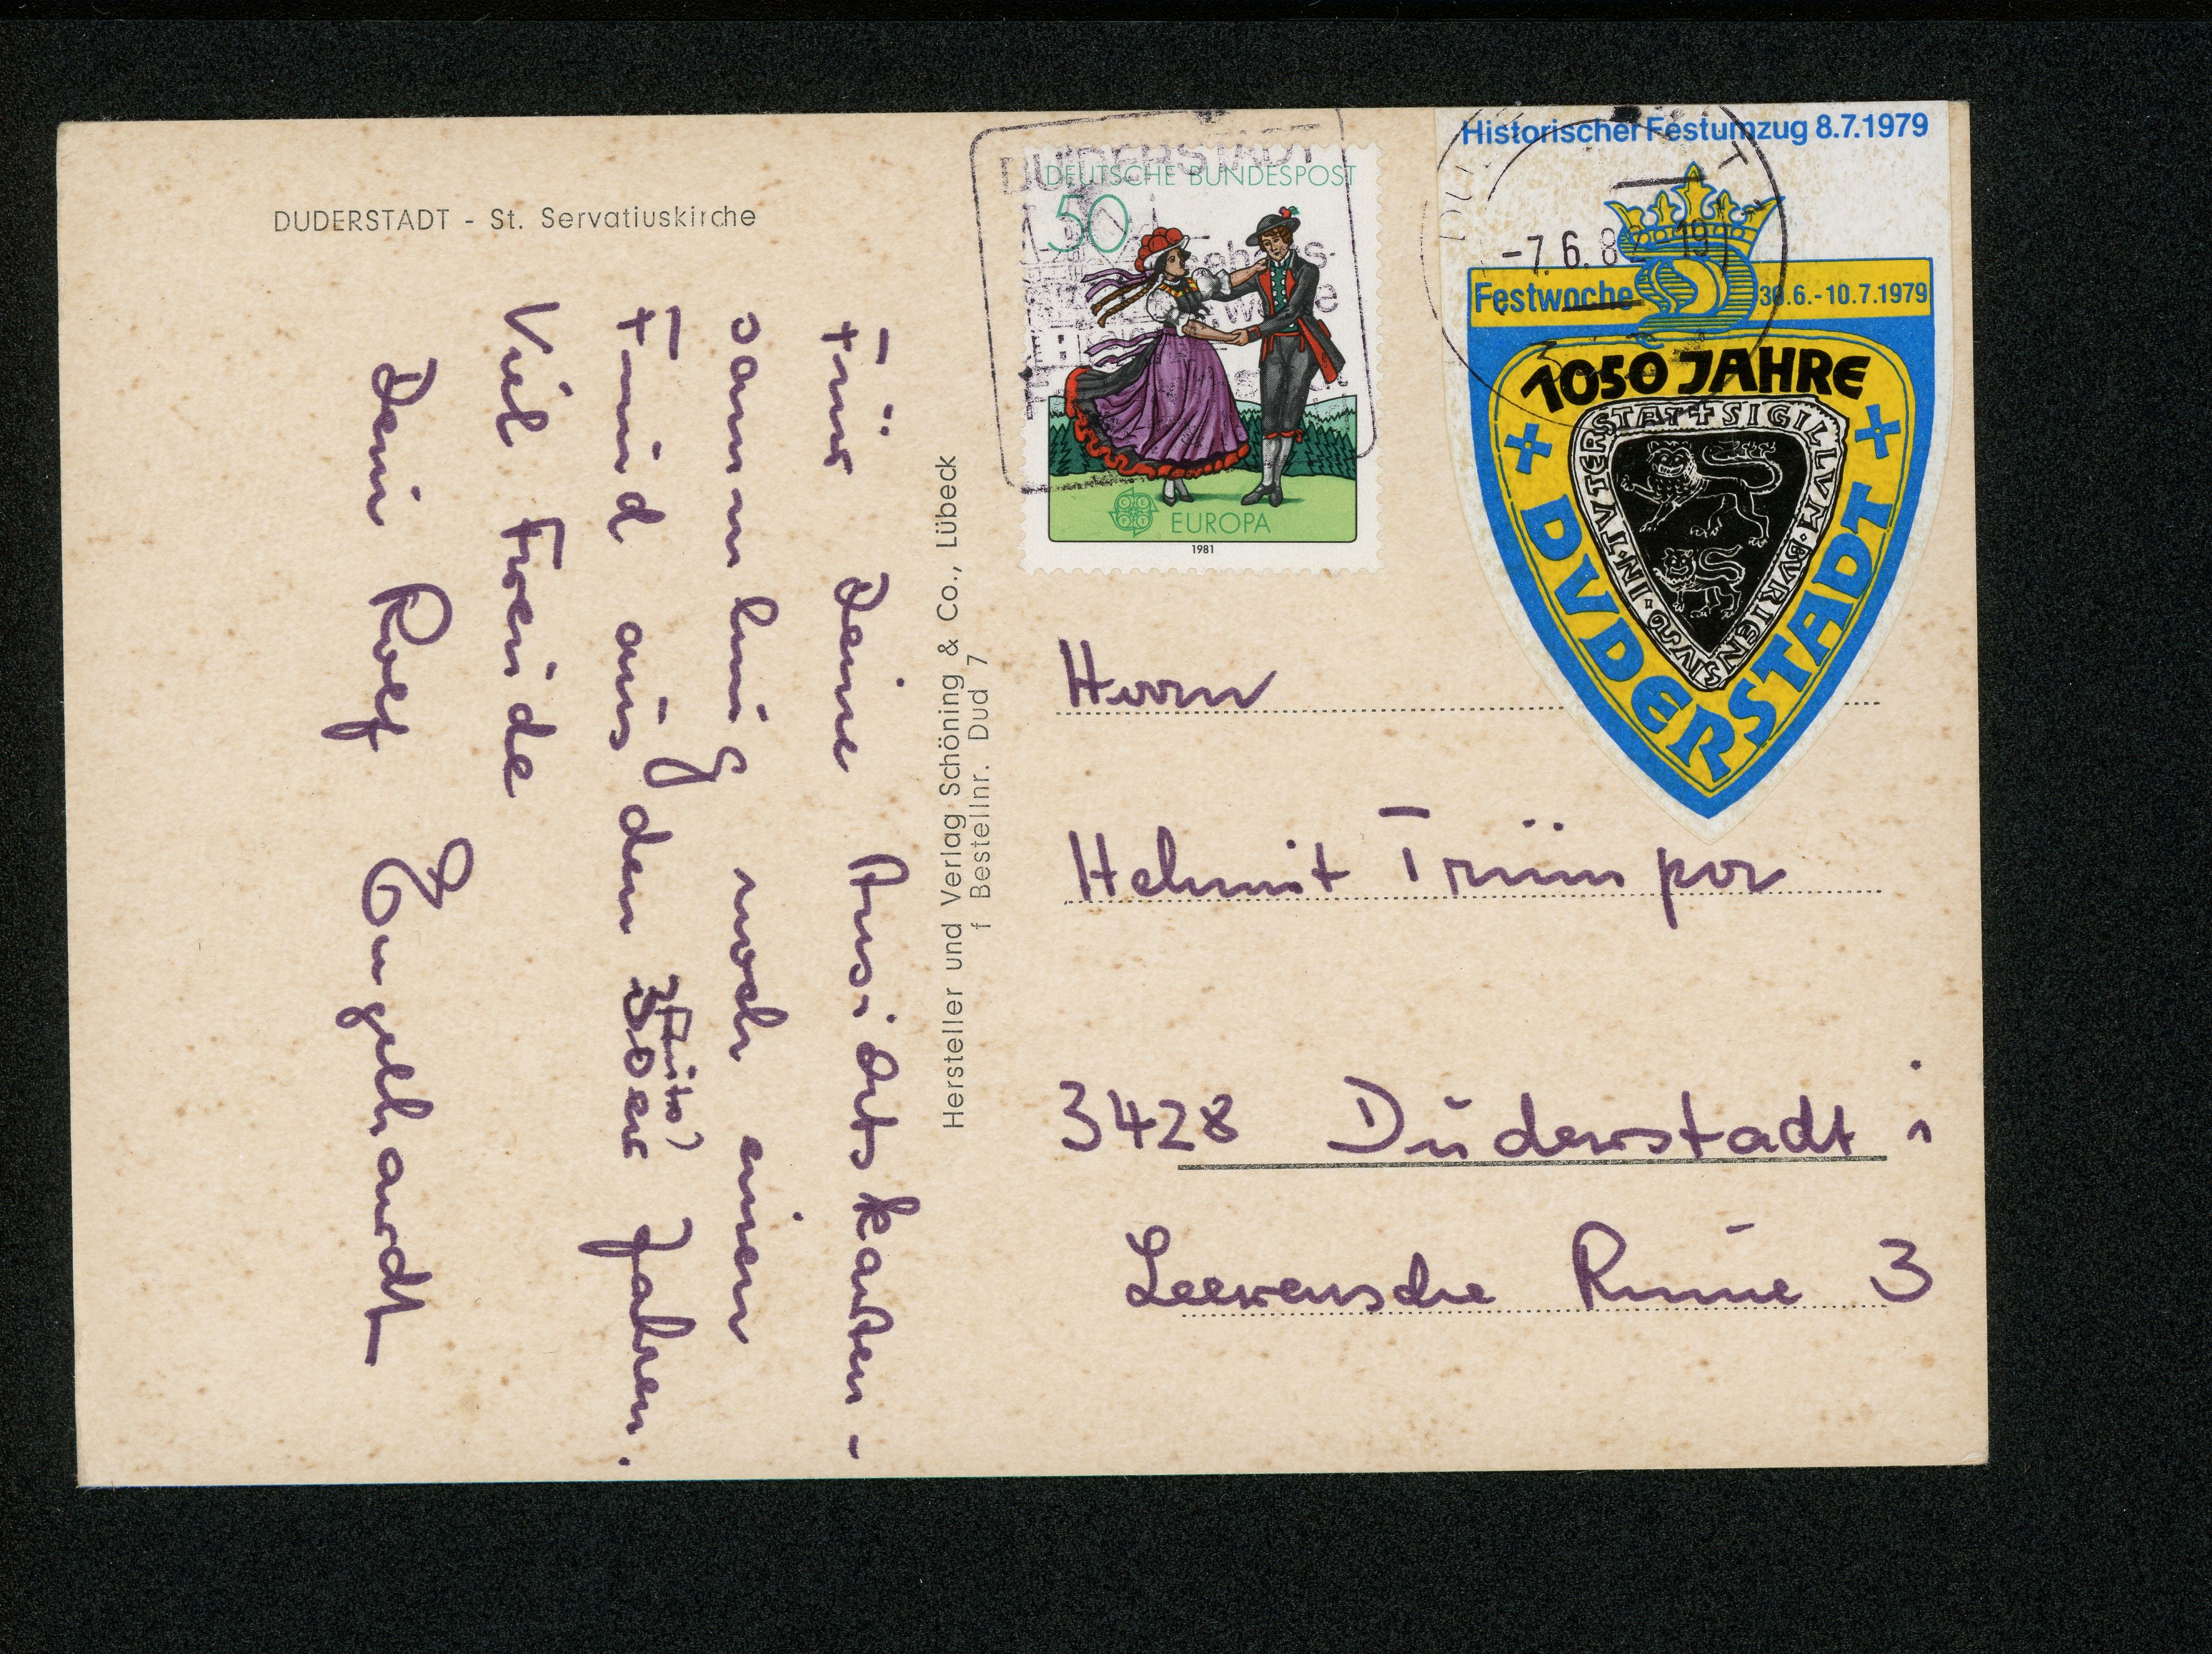 DUDERSTADT - St. Servatiuskirche
Für Deine Ansichtskarten-
sammlung noch einen
Fund aus den 30er Jahren.
Viel Freude
Dein Rolf Engelhardt
Hersteller und Verlag Schöning & Co., Lübeck
f Bestellnr. Dud 7
DUDERSTADT
DEUTSCHE BUNDESPOST
50
EUROPA
1981
Historischer Festumzug 8.7.1979
-7.6.8 19
Festwoche 30.6.-10.7.1979
1050 JAHRE
SIGILLVM·BVRIENSIVM·IN·TVTERSTAT
DVDERSTADT
Herrn
Helmut Trümper
3428 Duderstadt 1
Leewensche Runne 3